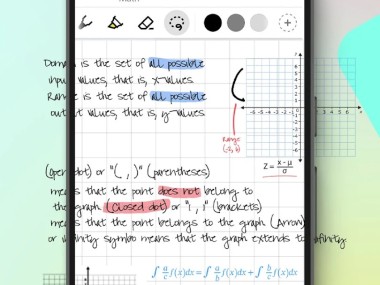 Domain is the set of all possible
input values, that is, x-values
Range is the set of all possible
output values, that is, y-values
Range
z = x-μ / σ
(open dot) or "( , )" (parentheses)
means that the point does not belong to
the graph (closed dot) or "[ , ]" (brackets)
means that the point belongs to the graph (Arrow)
or infinity symbo means that the graph extends to infinity
∫ᵃ꜀ f(x)dx = ∫ᵃ_b f(x)dx + ∫ᵇ꜀ f(x)dx